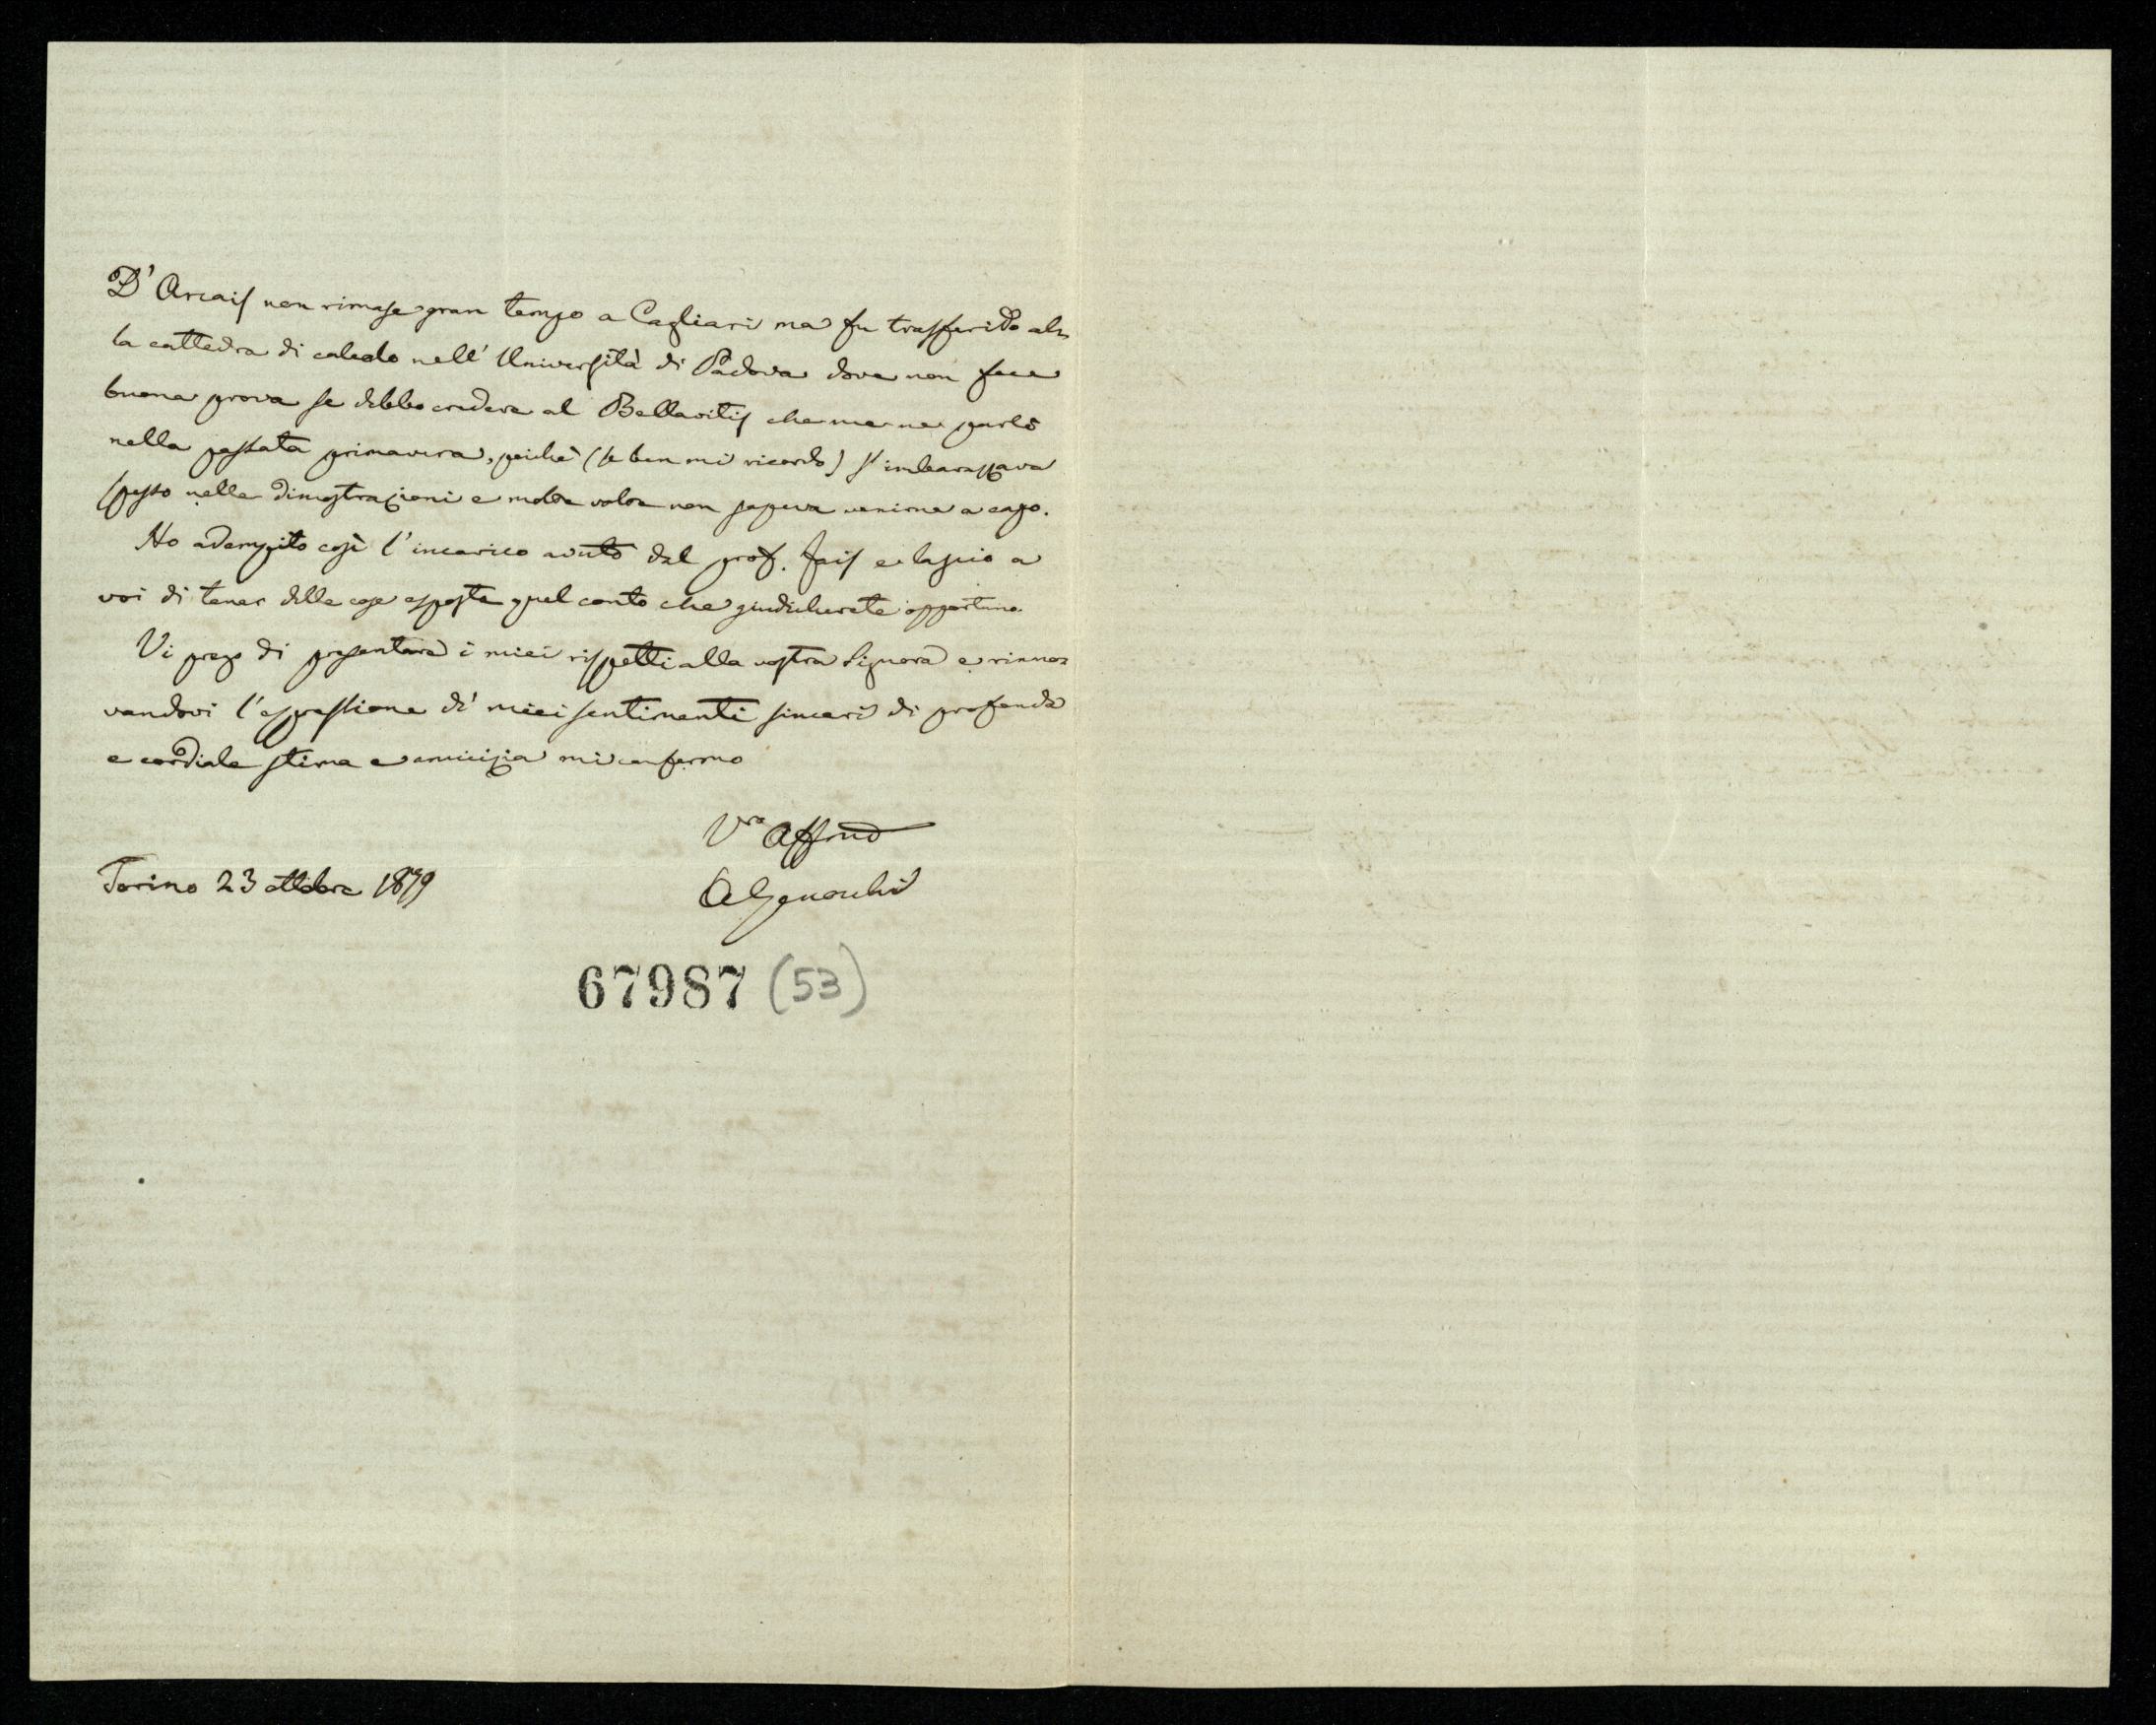 D'Arcais non rimase gran tempo a Cagliari ma fu trasferito al-
la cattedra di calcolo nell'Università di Padova dove non fece
buona prova se debbo credere al Bellavitis che me ne parlò
nella passata primavera, poichè (se ben mi ricordo) s'imbarazzava
spesso nelle dimostrazioni e molte volte non sapeva venirne a capo.
Ho adempito così l'incarico avuto dal prof. Fais e lascio a
voi di tener delle cose esposte quel conto che giudicherete opportuno.
Vi prego di presentare i miei rispetti alla vostra Signora e rinno-
vandovi l'espressione di' miei sentimenti sinceri di profonda
e cordiale stima e amicizia mi confermo
Vro Affmo
AGenocchi
Torino 23 ottobre 1879
67987 (53)